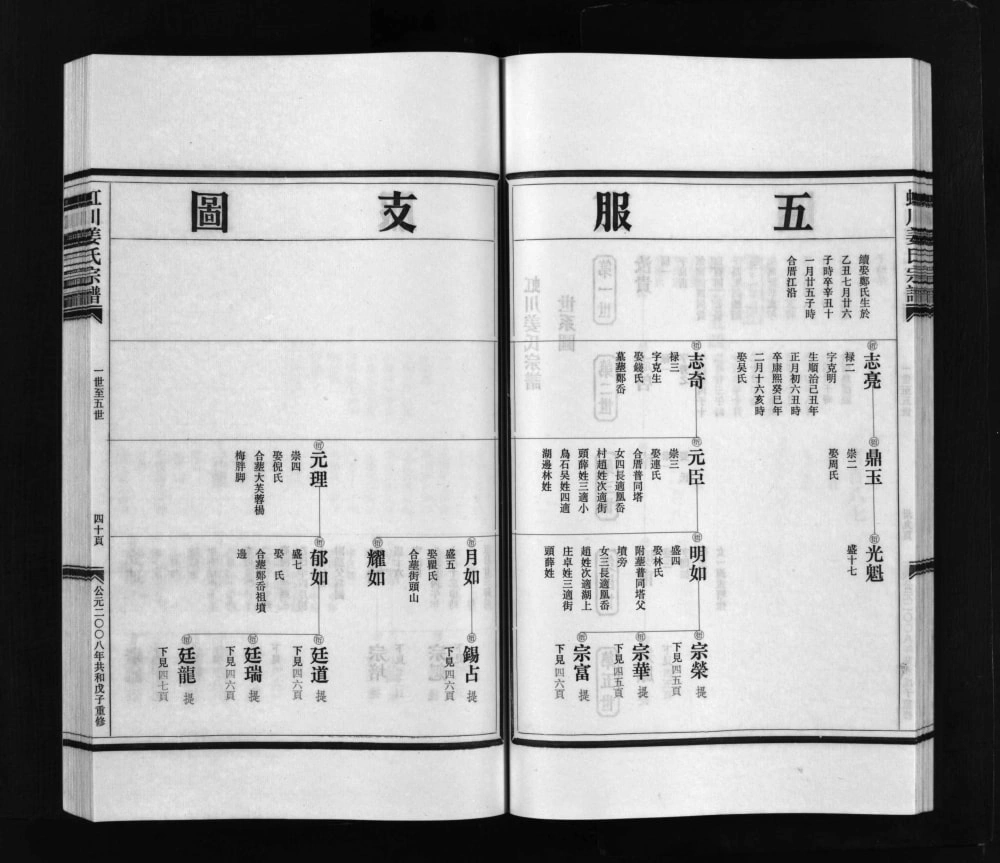 五服支圖
續娶鄭氏生於
乙丑七月廿六
子時卒辛丑十
一月廿五子時
合厝江沿
志亮
祿二
字克明
生順治己丑年
正月初六丑時
卒康熙癸巳年
二月十六亥時
娶吳氏
鼎玉
崇二
娶周氏
光魁
盛十七
志奇
祿三
字克生
娶錢氏
墓塟鄭岙
元臣
崇三
娶連氏
合厝普同塔
女四長適凰岙
村趙姓次適街
頭薛姓三適小
鳥石吴姓四適
湖邊林姓
明如
盛四
娶林氏
附塟普同塔父
墳旁
女三長適凰岙
趙姓次適湖上
庄卓姓三適街
頭薛姓
宗榮
提
下見四五頁
宗華
提
下見四五頁
宗富
提
下見四六頁
月如
盛五
娶瞿氏
合塟街頭山
錫占
提
下見四六頁
耀如
元理
崇四
娶倪氏
合塟大芙蓉楊
梅胖脚
郁如
盛七
娶 氏
合塟鄭岙祖墳
邊
廷道
提
下見四六頁
廷瑞
提
下見四六頁
廷龍
提
下見四七頁
虹川姜氏宗譜
一世至五世
四十頁
公元二〇〇八年共和戊子重修